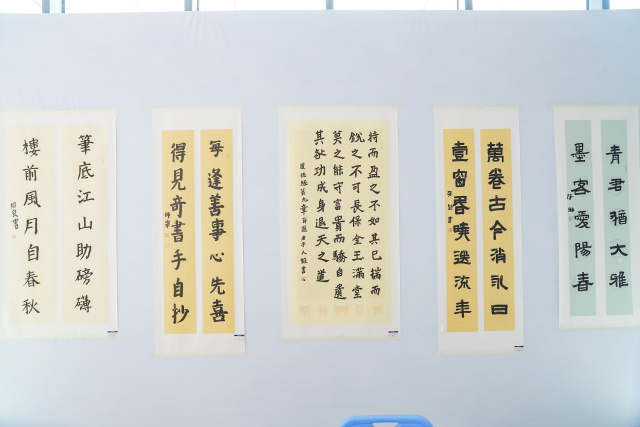 筆底江山助磅礴
樓前風月自春秋
每逢善事心先喜
得見奇書手自抄
持而盈之不如其已揣而
銳之不可長保金玉滿堂
莫之能守富貴而驕自遺
其咎功成身退天之道
道德經第九章
萬卷古今消永日
壹窗昏曉送流年
青君猶大雅
墨客愛陽春